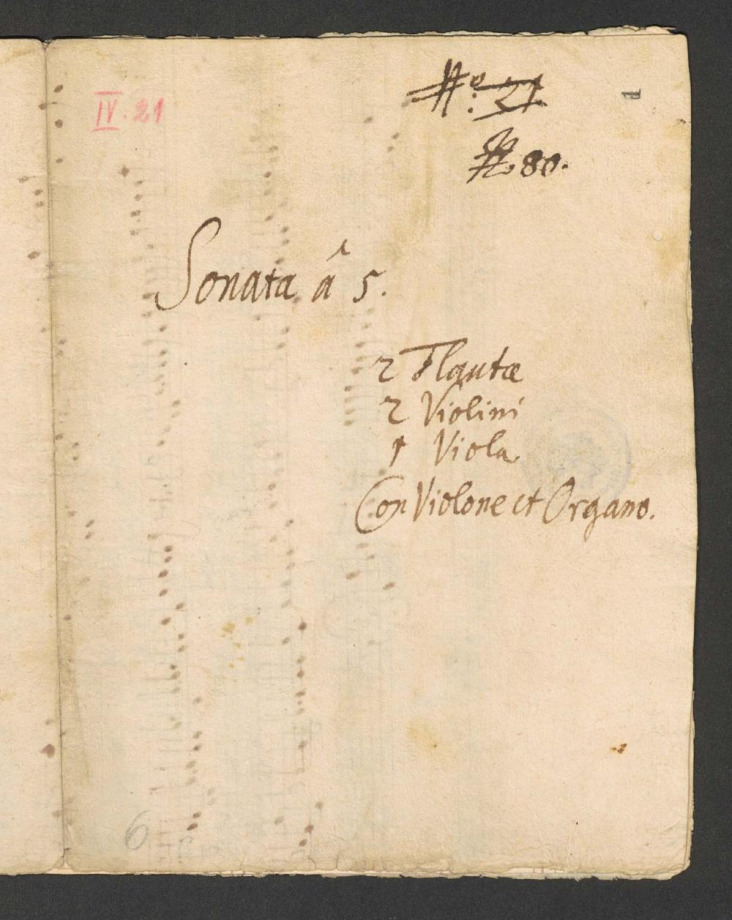 IV. 21
N.º 21
N. 80.
1
Sonata â 5.
2 Flautæ
2 Violini
1 Viola
Con Violone et Organo.
6